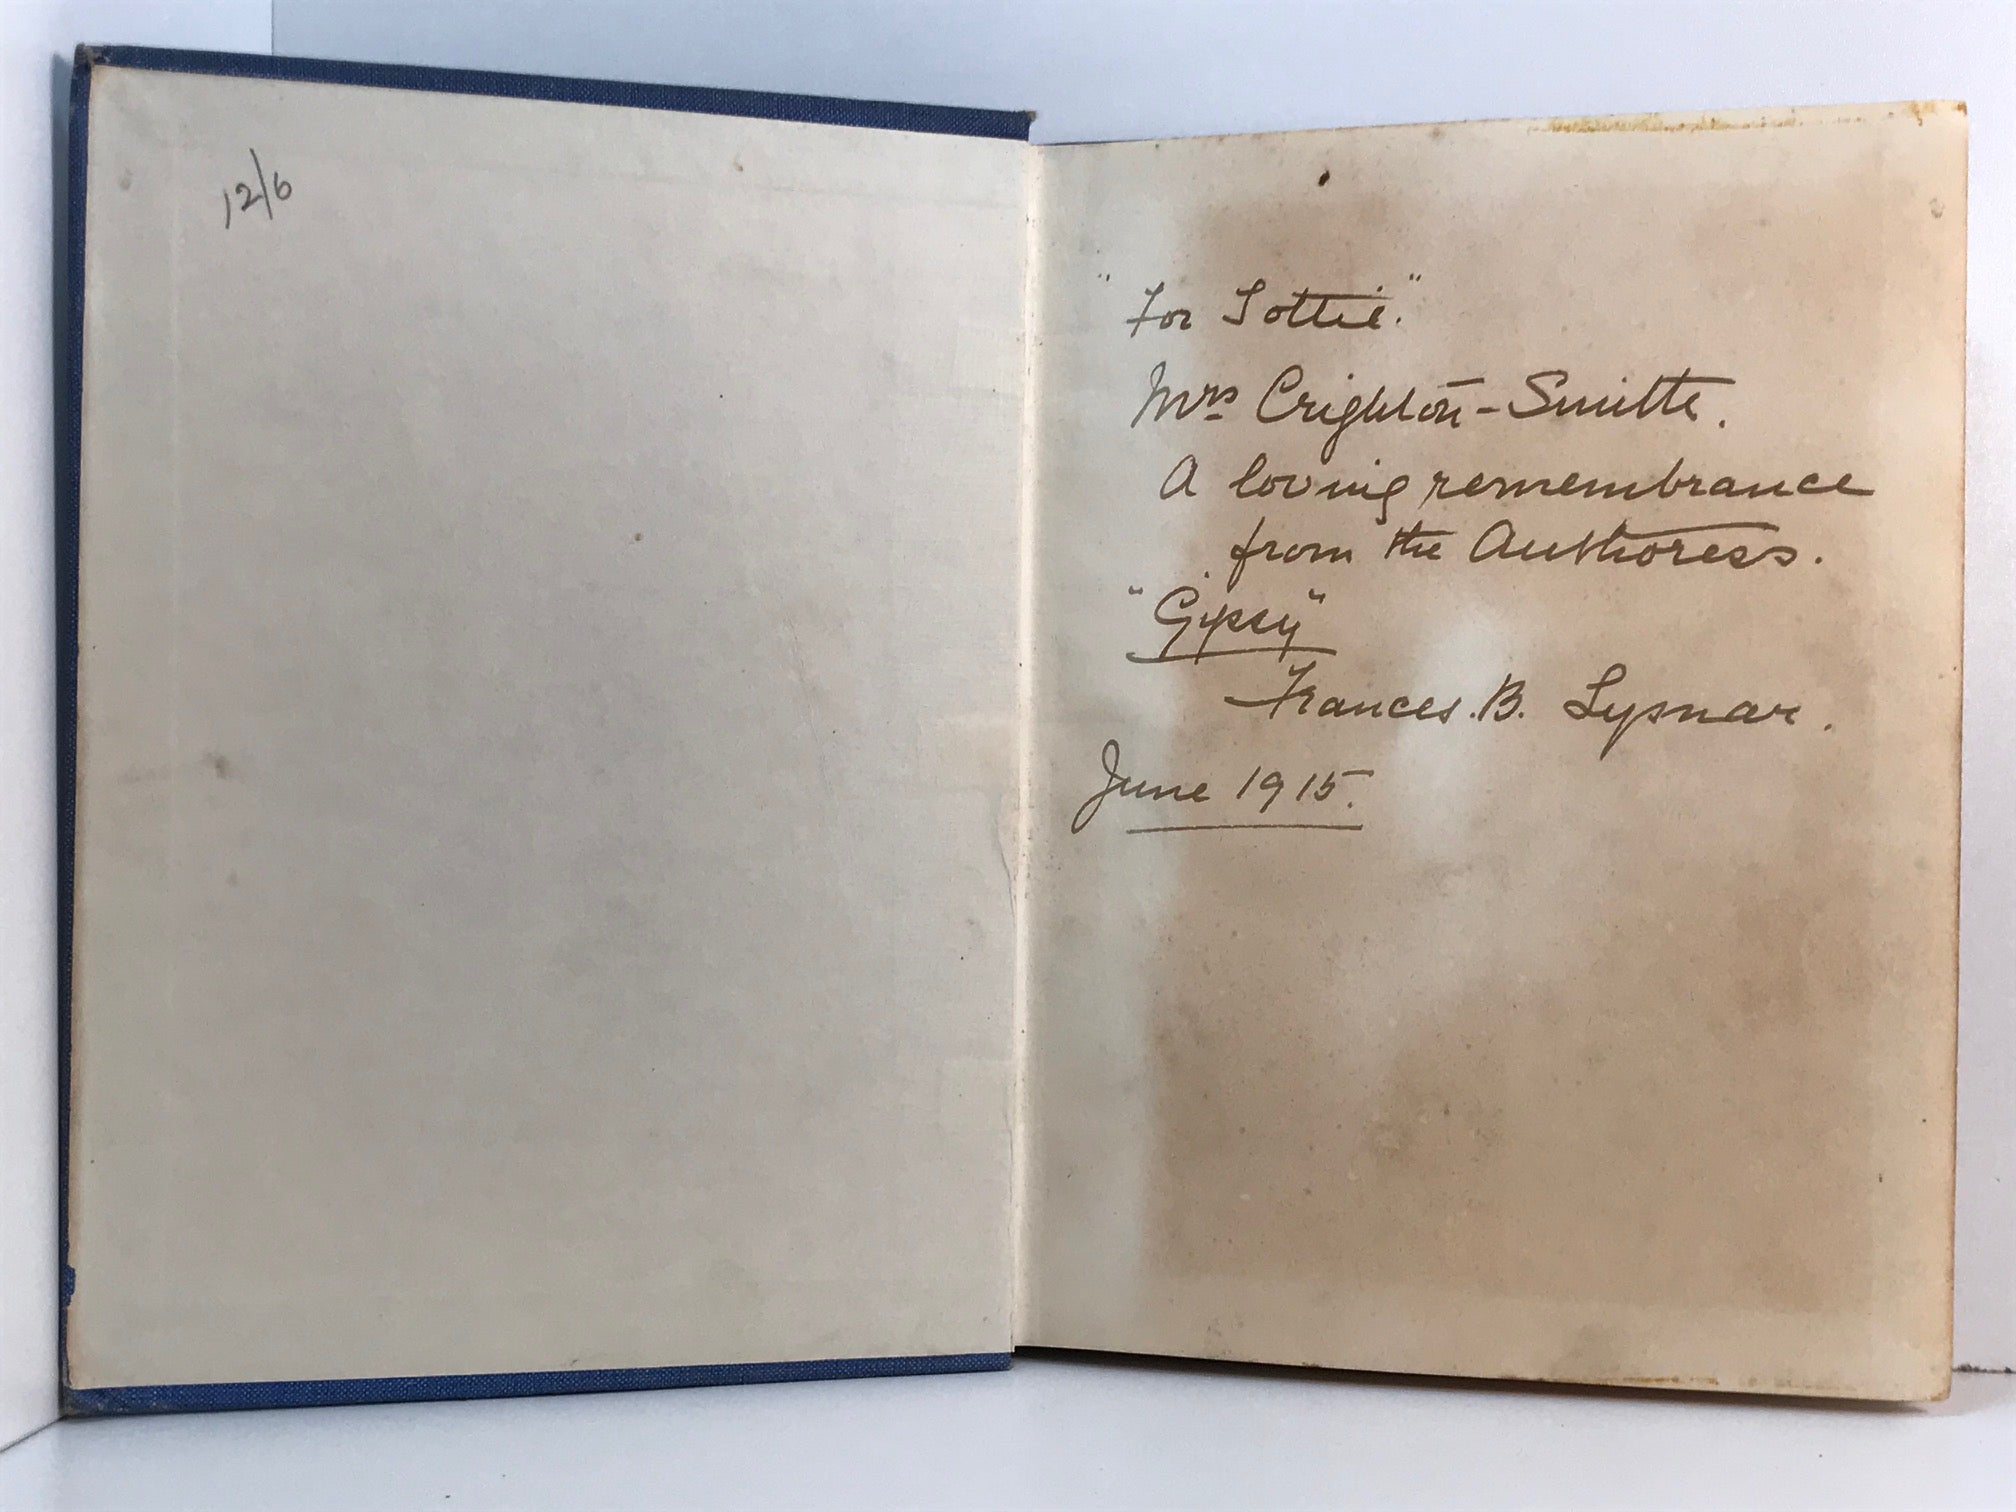 12/6
"For Lottie."
Mrs Crighton-Smith.
A loving remembrance
from the Authoress.
"Gipsy"
Frances. B. Lysnar.
June 1915.